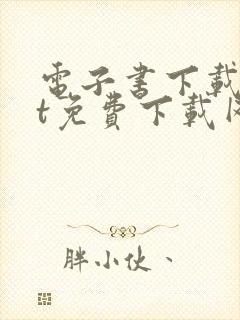 電子書下載
t免費下載
胖小伙、